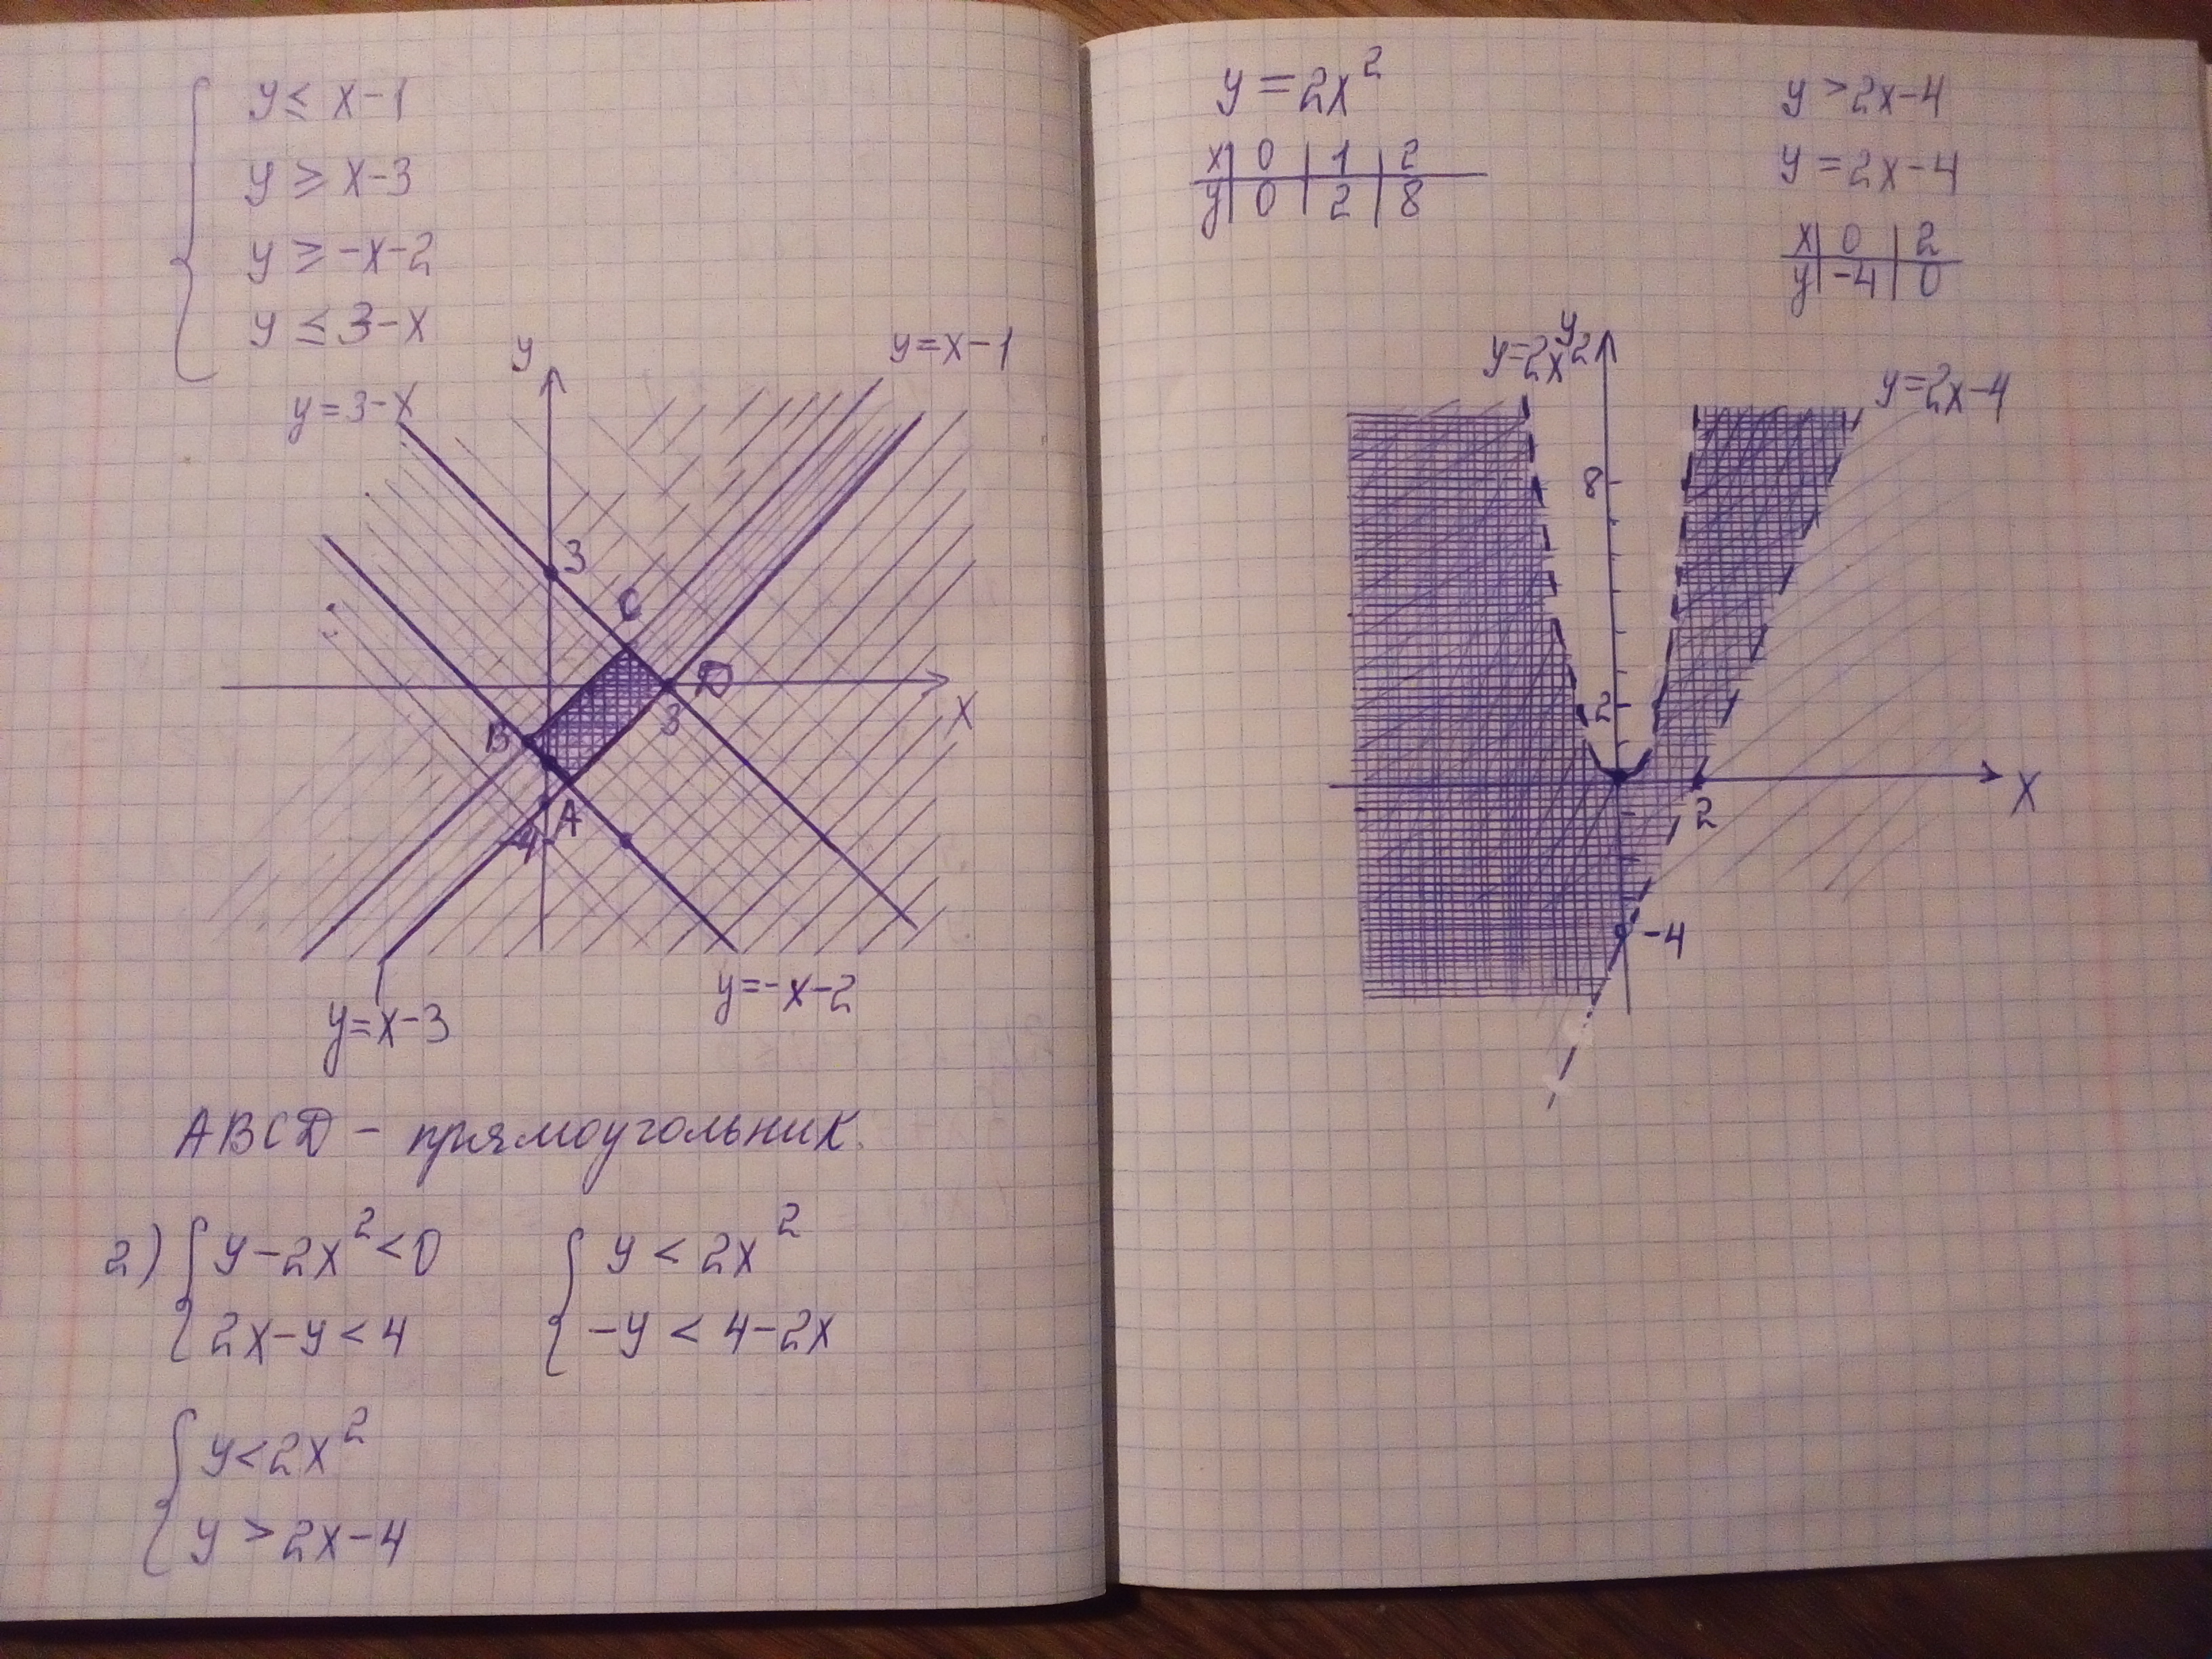 y ≤ x-1
y ≥ x-3
y ≥ -x-2
y ≤ 3-x
y=3-x
y
y=x-1
3
C
D
B
3
x
A
-4
y=x-3
y=-x-2
ABCD - прямоугольник.
2) { y-2x² < 0
2x-y < 4
{ y < 2x²
-y < 4-2x
{ y < 2x²
y > 2x-4
y = 2x²
x | 0 | 1 | 2
y | 0 | 2 | 8
y > 2x-4
y = 2x-4
x | 0 | 2
y | -4 | 0
y=2x²
y
y=2x-4
8
2
2
x
-4